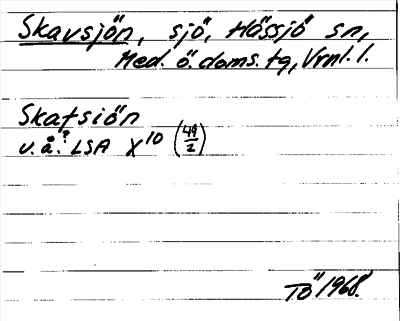 Skavsjön, sjö, Hössjö sn,
Med. ö. doms. tg, Vrml. l.
Skatsiön
u.å.? LSA X10 (49/2)
TÖ 1968.